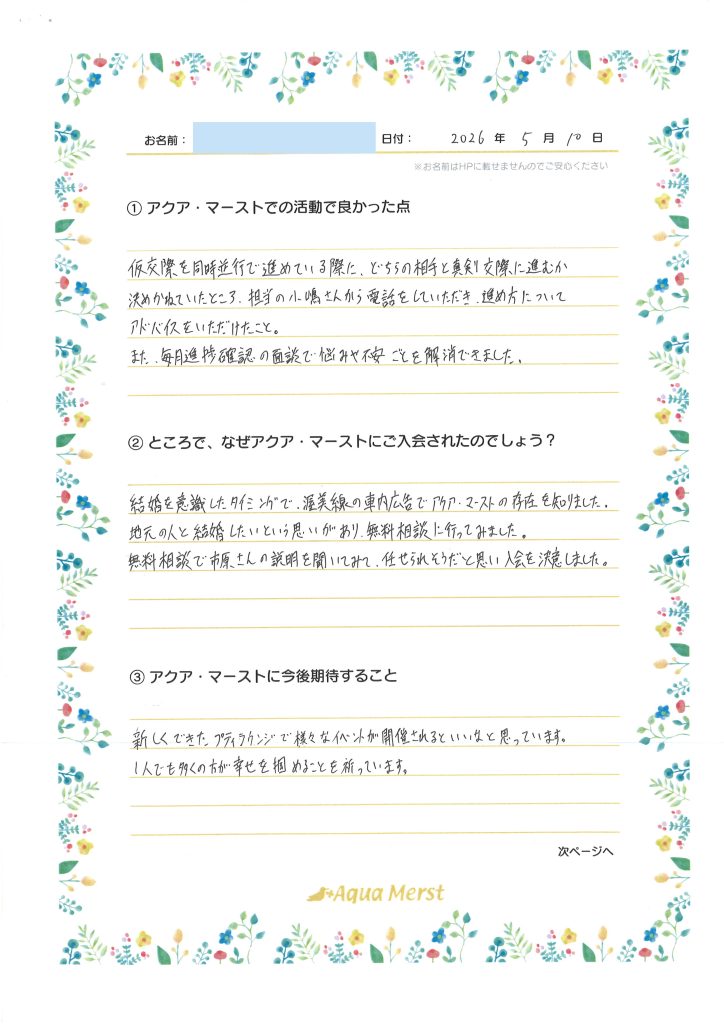 お名前：
日付： 2026 年 5 月 10 日
※お名前はHPに載せませんのでご安心ください
① アクア・マーストでの活動で良かった点
仮交際を同時並行で進めている際に、どちらの相手と真剣交際に進むか
決めかねていたところ、担当の小嶋さんから電話をしていただき、進め方について
アドバイスをいただけたこと。
また、毎月進捗確認の面談で悩みや不安ごとを解消できました。
② ところで、なぜアクア・マーストにご入会されたのでしょう？
結婚を意識したタイミングで、渥美線の車内広告でアクア・マーストの存在を知りました。
地元の人と結婚したいという思いがあり、無料相談に行ってみました。
無料相談で市原さんの説明を聞いてみて、任せられそうだと思い入会を決意しました。
③ アクア・マーストに今後期待すること
新しくできたプティラウンジで様々なイベントが開催されるといいなと思っています。
1人でも多くの方が幸せを掴めることを祈っています。
次ページへ
Aqua Merst